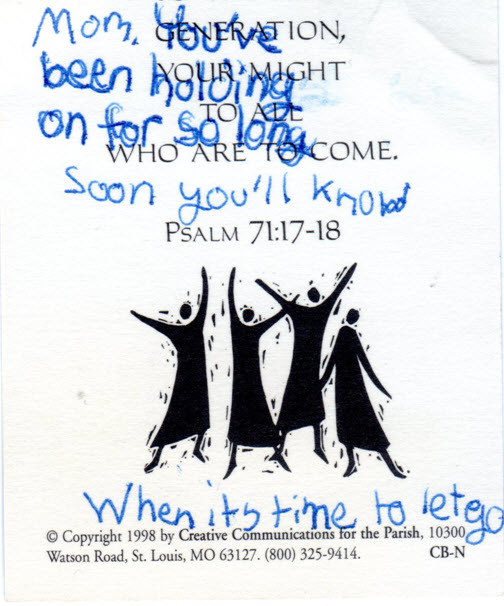 Mom, You've
GENERATION,
been holding
YOUR MIGHT
TO ALL
on for so long
WHO ARE TO COME.
Soon you'll know
PSALM 71:17-18
When its time to let go
© Copyright 1998 by Creative Communications for the Parish, 10300
Watson Road, St. Louis, MO 63127. (800) 325-9414. CB-N